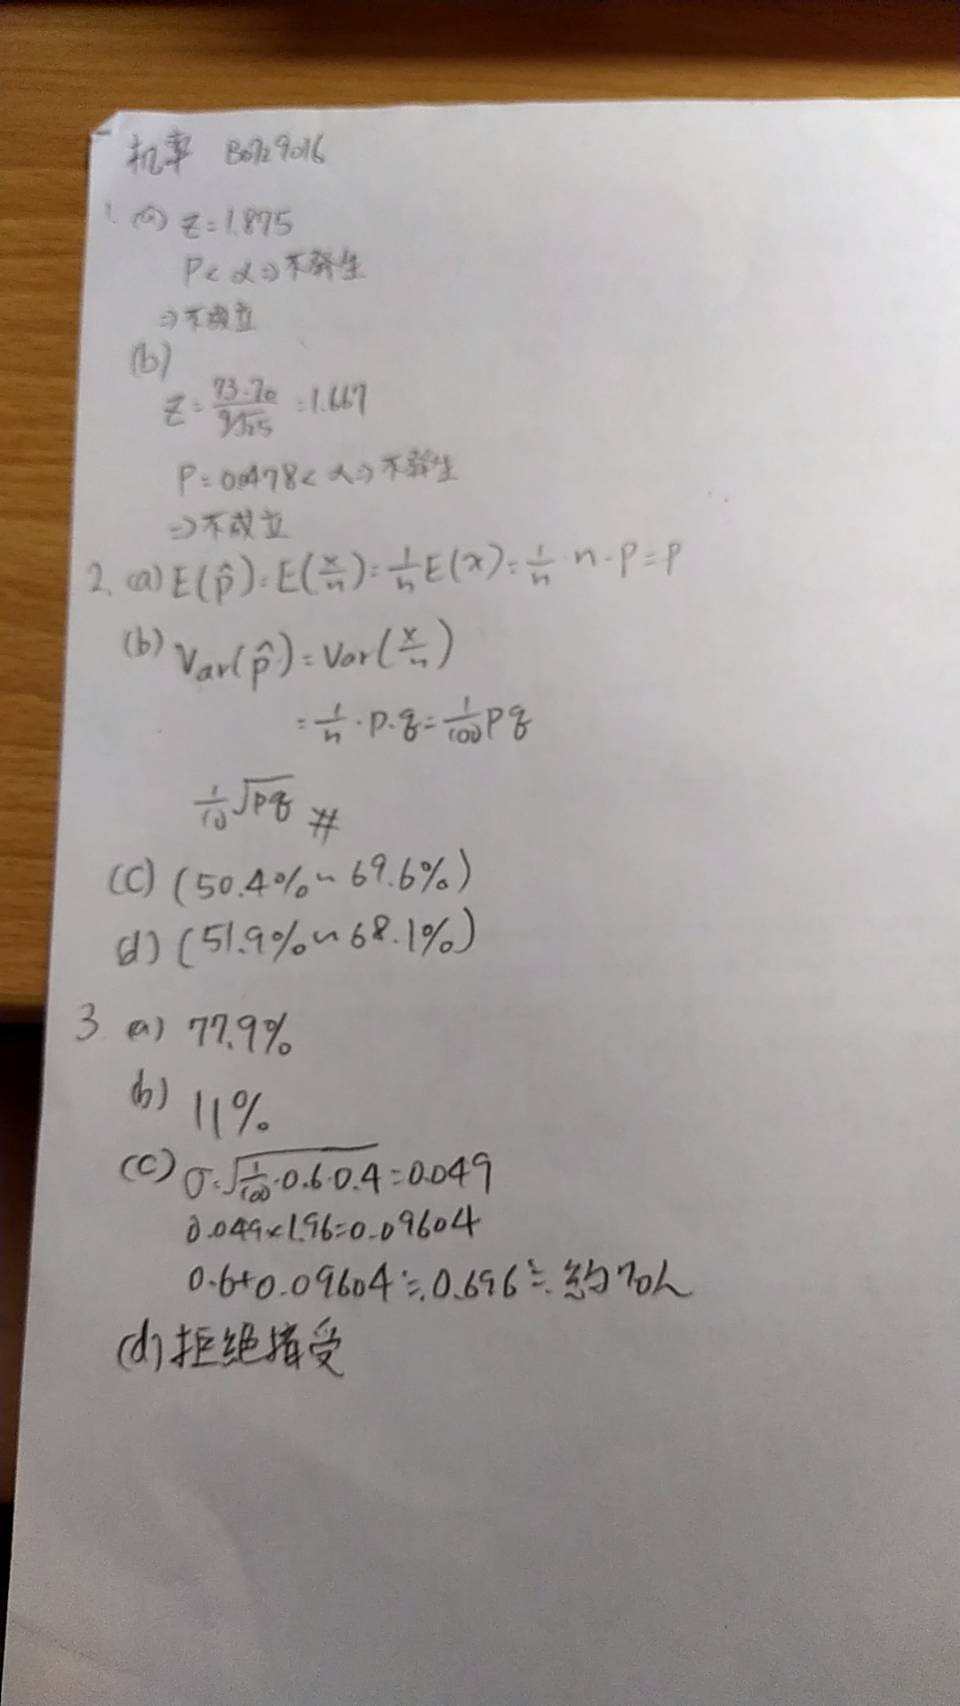 机率 B0729016
1. (a) z=1.875
P< α⇒不發生
⇒不成立
(b)
z=(73-70)/(9/√25)=1.667
P=0.0478< α⇒不發生
⇒不成立
2. (a) E(p̂)=E(x/n)=1/n E(x)=1/n·n·P=P
(b) Var(p̂)=Var(x/n)
=1/n·p·q=1/100 pq
1/10 √pq #
(c) (50.4%~69.6%)
(d) (51.9%~68.1%)
3 (a) 77.9%
(b) 11%
(c) σ=√(1/100·0.6·0.4)=0.049
0.049×1.96=0.09604
0.6+0.09604≒0.696≒約70人
(d) 拒絕接受